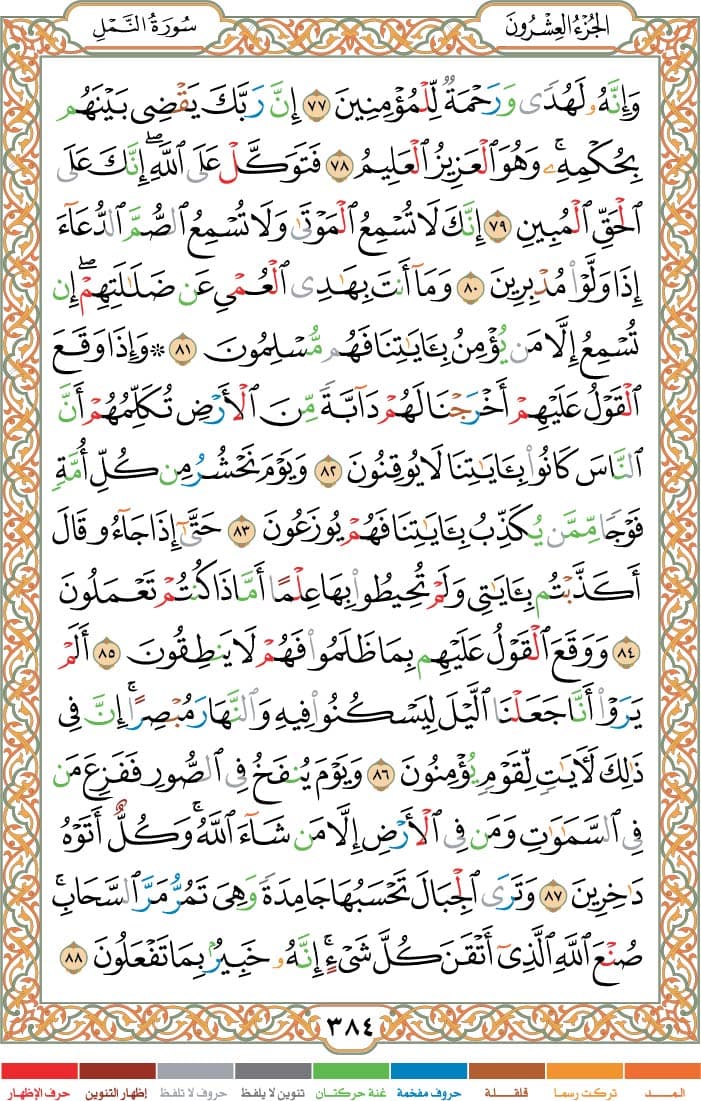 الجُزْءُ العِشْرُونَ
سُورَةُ النَّمْلِ
وَإِنَّهُۥ لَهُدًى وَرَحْمَةٌ لِّلْمُؤْمِنِينَ ٧٧ إِنَّ رَبَّكَ يَقْضِى بَيْنَهُم
بِحُكْمِهِۦۚ وَهُوَ ٱلْعَزِيزُ ٱلْعَلِيمُ ٧٨ فَتَوَكَّلْ عَلَى ٱللَّهِۖ إِنَّكَ عَلَى
ٱلْحَقِّ ٱلْمُبِينِ ٧٩ إِنَّكَ لَا تُسْمِعُ ٱلْمَوْتَىٰ وَلَا تُسْمِعُ ٱلصُّمَّ ٱلدُّعَآءَ
إِذَا وَلَّوْا۟ مُدْبِرِينَ ٨٠ وَمَآ أَنتَ بِهَـٰدِى ٱلْعُمْىِ عَن ضَلَـٰلَتِهِمْۖ إِن
تُسْمِعُ إِلَّا مَن يُؤْمِنُ بِـَٔايَـٰتِنَا فَهُم مُّسْلِمُونَ ٨١ ۞ وَإِذَا وَقَعَ
ٱلْقَوْلُ عَلَيْهِمْ أَخْرَجْنَا لَهُمْ دَآبَّةً مِّنَ ٱلْأَرْضِ تُكَلِّمُهُمْ أَنَّ
ٱلنَّاسَ كَانُوا۟ بِـَٔايَـٰتِنَا لَا يُوقِنُونَ ٨٢ وَيَوْمَ نَحْشُرُ مِن كُلِّ أُمَّةٍ
فَوْجًا مِّمَّن يُكَذِّبُ بِـَٔايَـٰتِنَا فَهُمْ يُوزَعُونَ ٨٣ حَتَّىٰٓ إِذَا جَآءُو قَالَ
أَكَذَّبْتُم بِـَٔايَـٰتِى وَلَمْ تُحِيطُوا۟ بِهَا عِلْمًا أَمَّاذَا كُنتُمْ تَعْمَلُونَ
٨٤ وَوَقَعَ ٱلْقَوْلُ عَلَيْهِم بِمَا ظَلَمُوا۟ فَهُمْ لَا يَنطِقُونَ ٨٥ أَلَمْ
يَرَوْا۟ أَنَّا جَعَلْنَا ٱلَّيْلَ لِيَسْكُنُوا۟ فِيهِ وَٱلنَّهَارَ مُبْصِرًاۚ إِنَّ فِى
ذَٰلِكَ لَـَٔايَـٰتٍ لِّقَوْمٍ يُؤْمِنُونَ ٨٦ وَيَوْمَ يُنفَخُ فِى ٱلصُّورِ فَفَزِعَ مَن
فِى ٱلسَّمَـٰوَٰتِ وَمَن فِى ٱلْأَرْضِ إِلَّا مَن شَآءَ ٱللَّهُۚ وَكُلٌّ أَتَوْهُ
دَٰخِرِينَ ٨٧ وَتَرَى ٱلْجِبَالَ تَحْسَبُهَا جَامِدَةً وَهِىَ تَمُرُّ مَرَّ ٱلسَّحَابِۚ
صُنْعَ ٱللَّهِ ٱلَّذِىٓ أَتْقَنَ كُلَّ شَىْءٍۚ إِنَّهُۥ خَبِيرٌۢ بِمَا تَفْعَلُونَ ٨٨
٣٨٤
المـــد تركت رسما قلقـلة حروف مفخمة غنة حركتان تنوين لا يلفظ حروف لا تلفظ إظهار التنوين حرف الإظهار